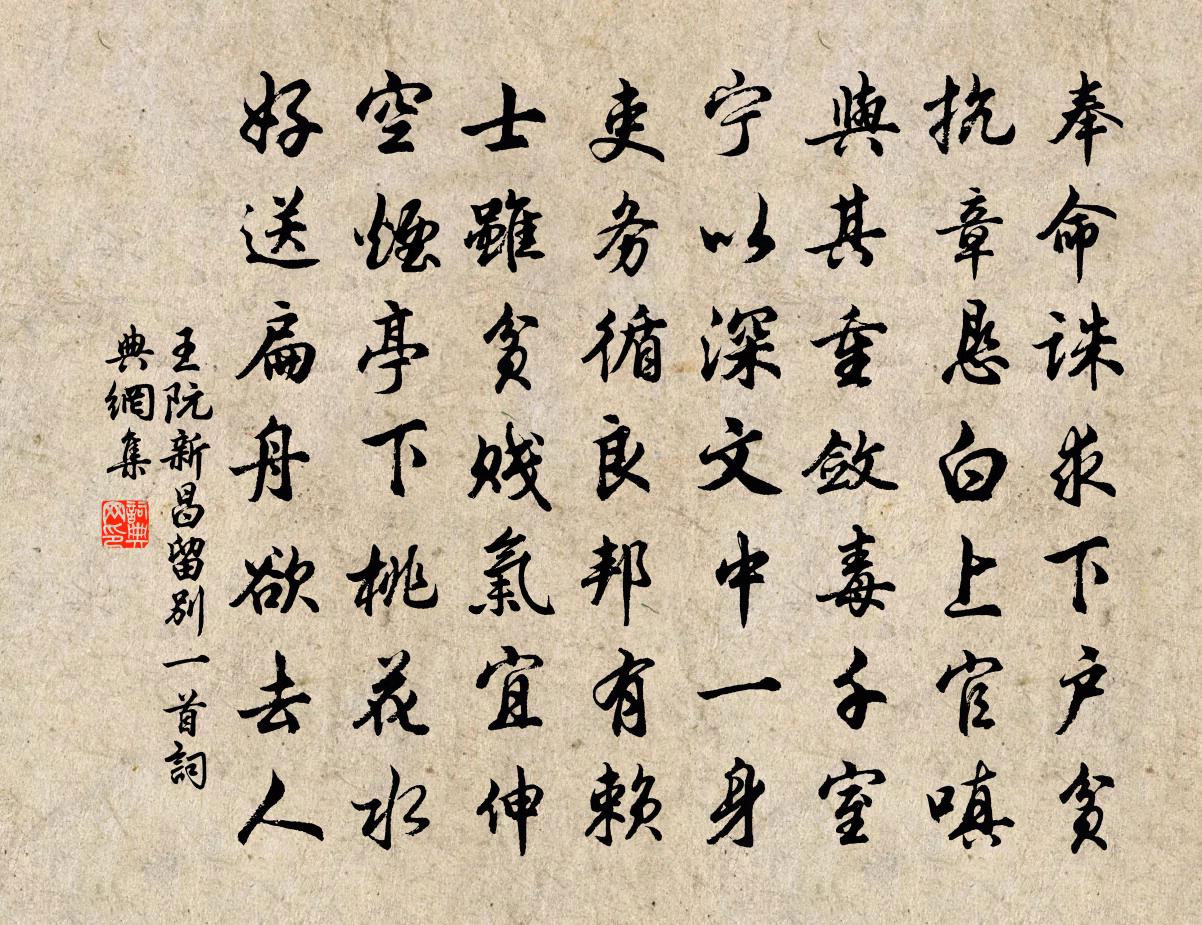 奉命誅求下户貧
抗章恳白上官嗔
與其重斂毒千室
宁以深文中一身
吏务循良邦有賴
士雖貧贱氣宜伸
空煙亭下桃花水
好送扁舟欲去人
王阮新昌留別一首詞
典網集
詞典
网印